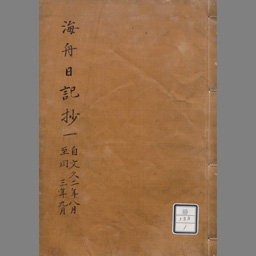 海舟日記抄 一
自文久二年八月
至同 三年九月
133
1